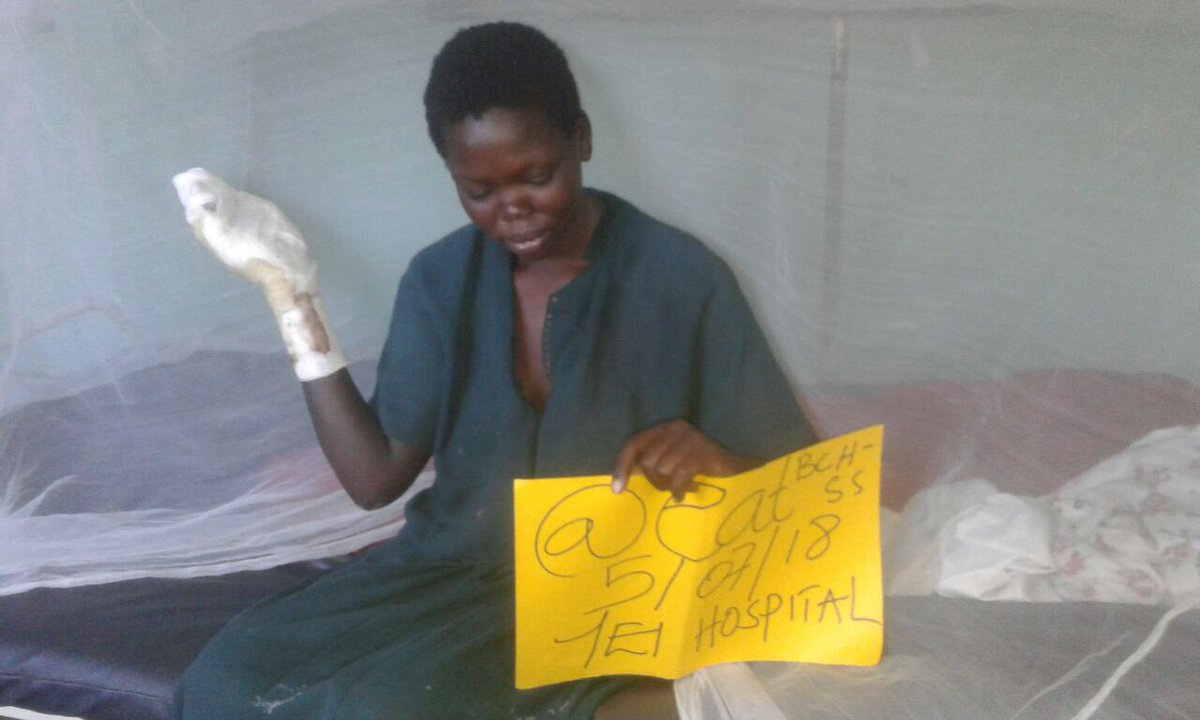 @Eat IBCH-SS
5/07/18
TEI HOSPITAL